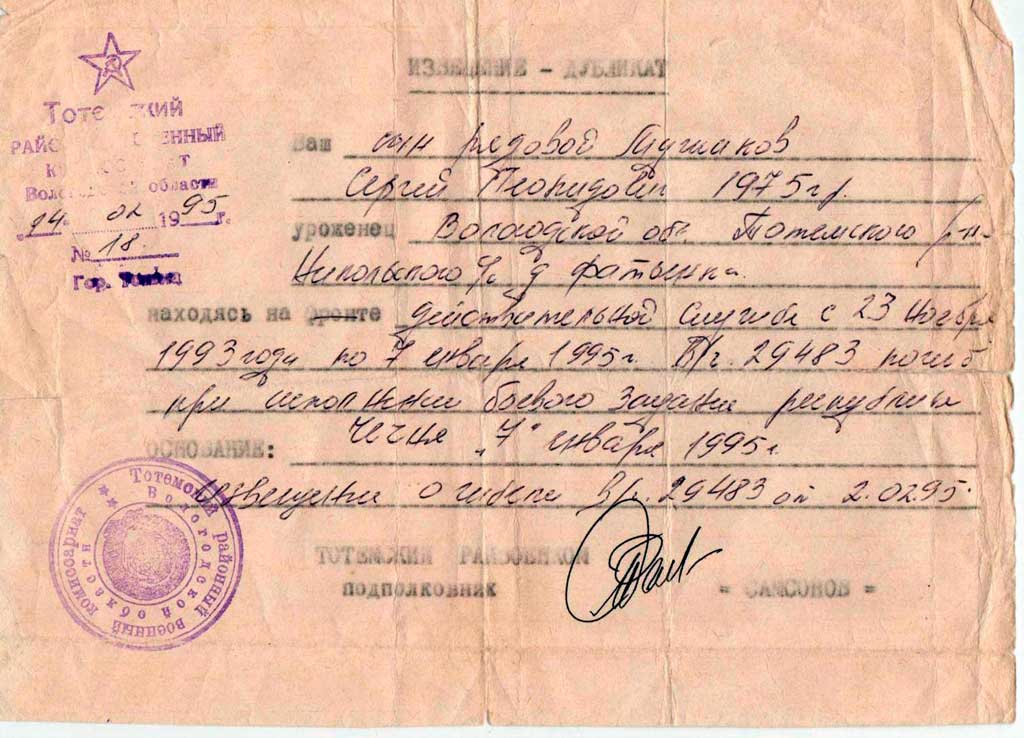 ИЗВЕЩЕНИЕ - ДУБЛИКАТ
Тоте кий
РАЙО ЕННЫЙ
К Т
Воло области
"24" 02 1995г.
№ 18.
Гор. Тотьма
Ваш сын рядовой
Сергей Леонидович 1975 г.р.
уроженец Вологодской об. Тотемского р-н
Никольского с/с д. Фатьянка.
находясь на фронте действительной службе с 23 ноября
1993 года по 7 января 1995 г. В/ч. 29483 погиб
при исполнении боевого задания республика
Чечня "7" января 1995 г.
ОСНОВАНИЕ:
Извещение о гибели В/ч. 29483 от 2.02.95.
ТОТЕМСКИЙ РАЙВОЕНКОМ
ПОДПОЛКОВНИК = САМСОНОВ =
Тотемский районный военный комиссариат
Вологодской области